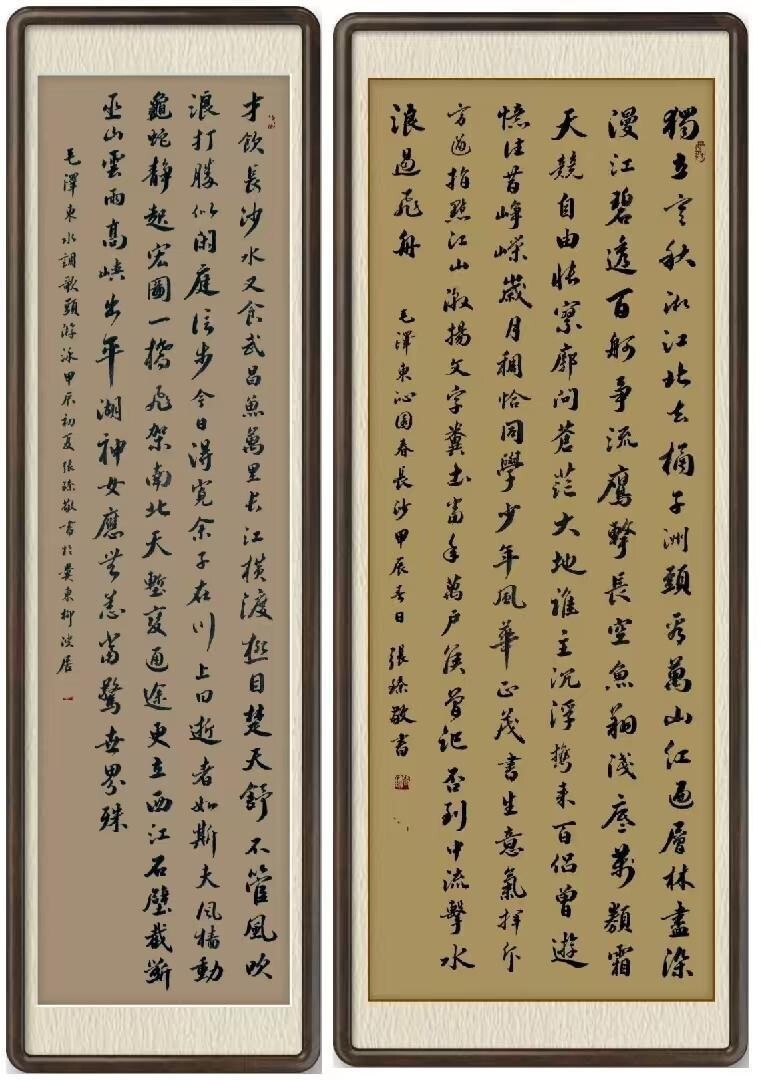 獨立寒秋湘江北去橘子洲頭看萬山紅遍層林盡染
漫江碧透百舸爭流鷹擊長空魚翔淺底萬類霜
天競自由悵寥廓問蒼茫大地誰主沉浮攜来百侶曾遊
憶往昔崢嶸歲月稠恰同學少年風華正茂書生意氣揮斥
方遒指點江山激揚文字糞土當年萬戶侯曾記否到中流擊水
浪遏飛舟
毛澤東沁園春長沙甲辰日張臻敬書
才飲長沙水又食武昌魚萬里長江橫渡極目楚天舒不管風吹
浪打勝似閑庭信步今日得寬余子在川上曰逝者如斯夫風檣動
龜蛇靜起宏圖一橋飛架南北天塹變通途更立西江石壁截斷
巫山雲雨高峽出平湖神女應無恙當驚世界殊
毛澤東水調歌頭游泳甲辰初夏張臻敬書於冀東柳居